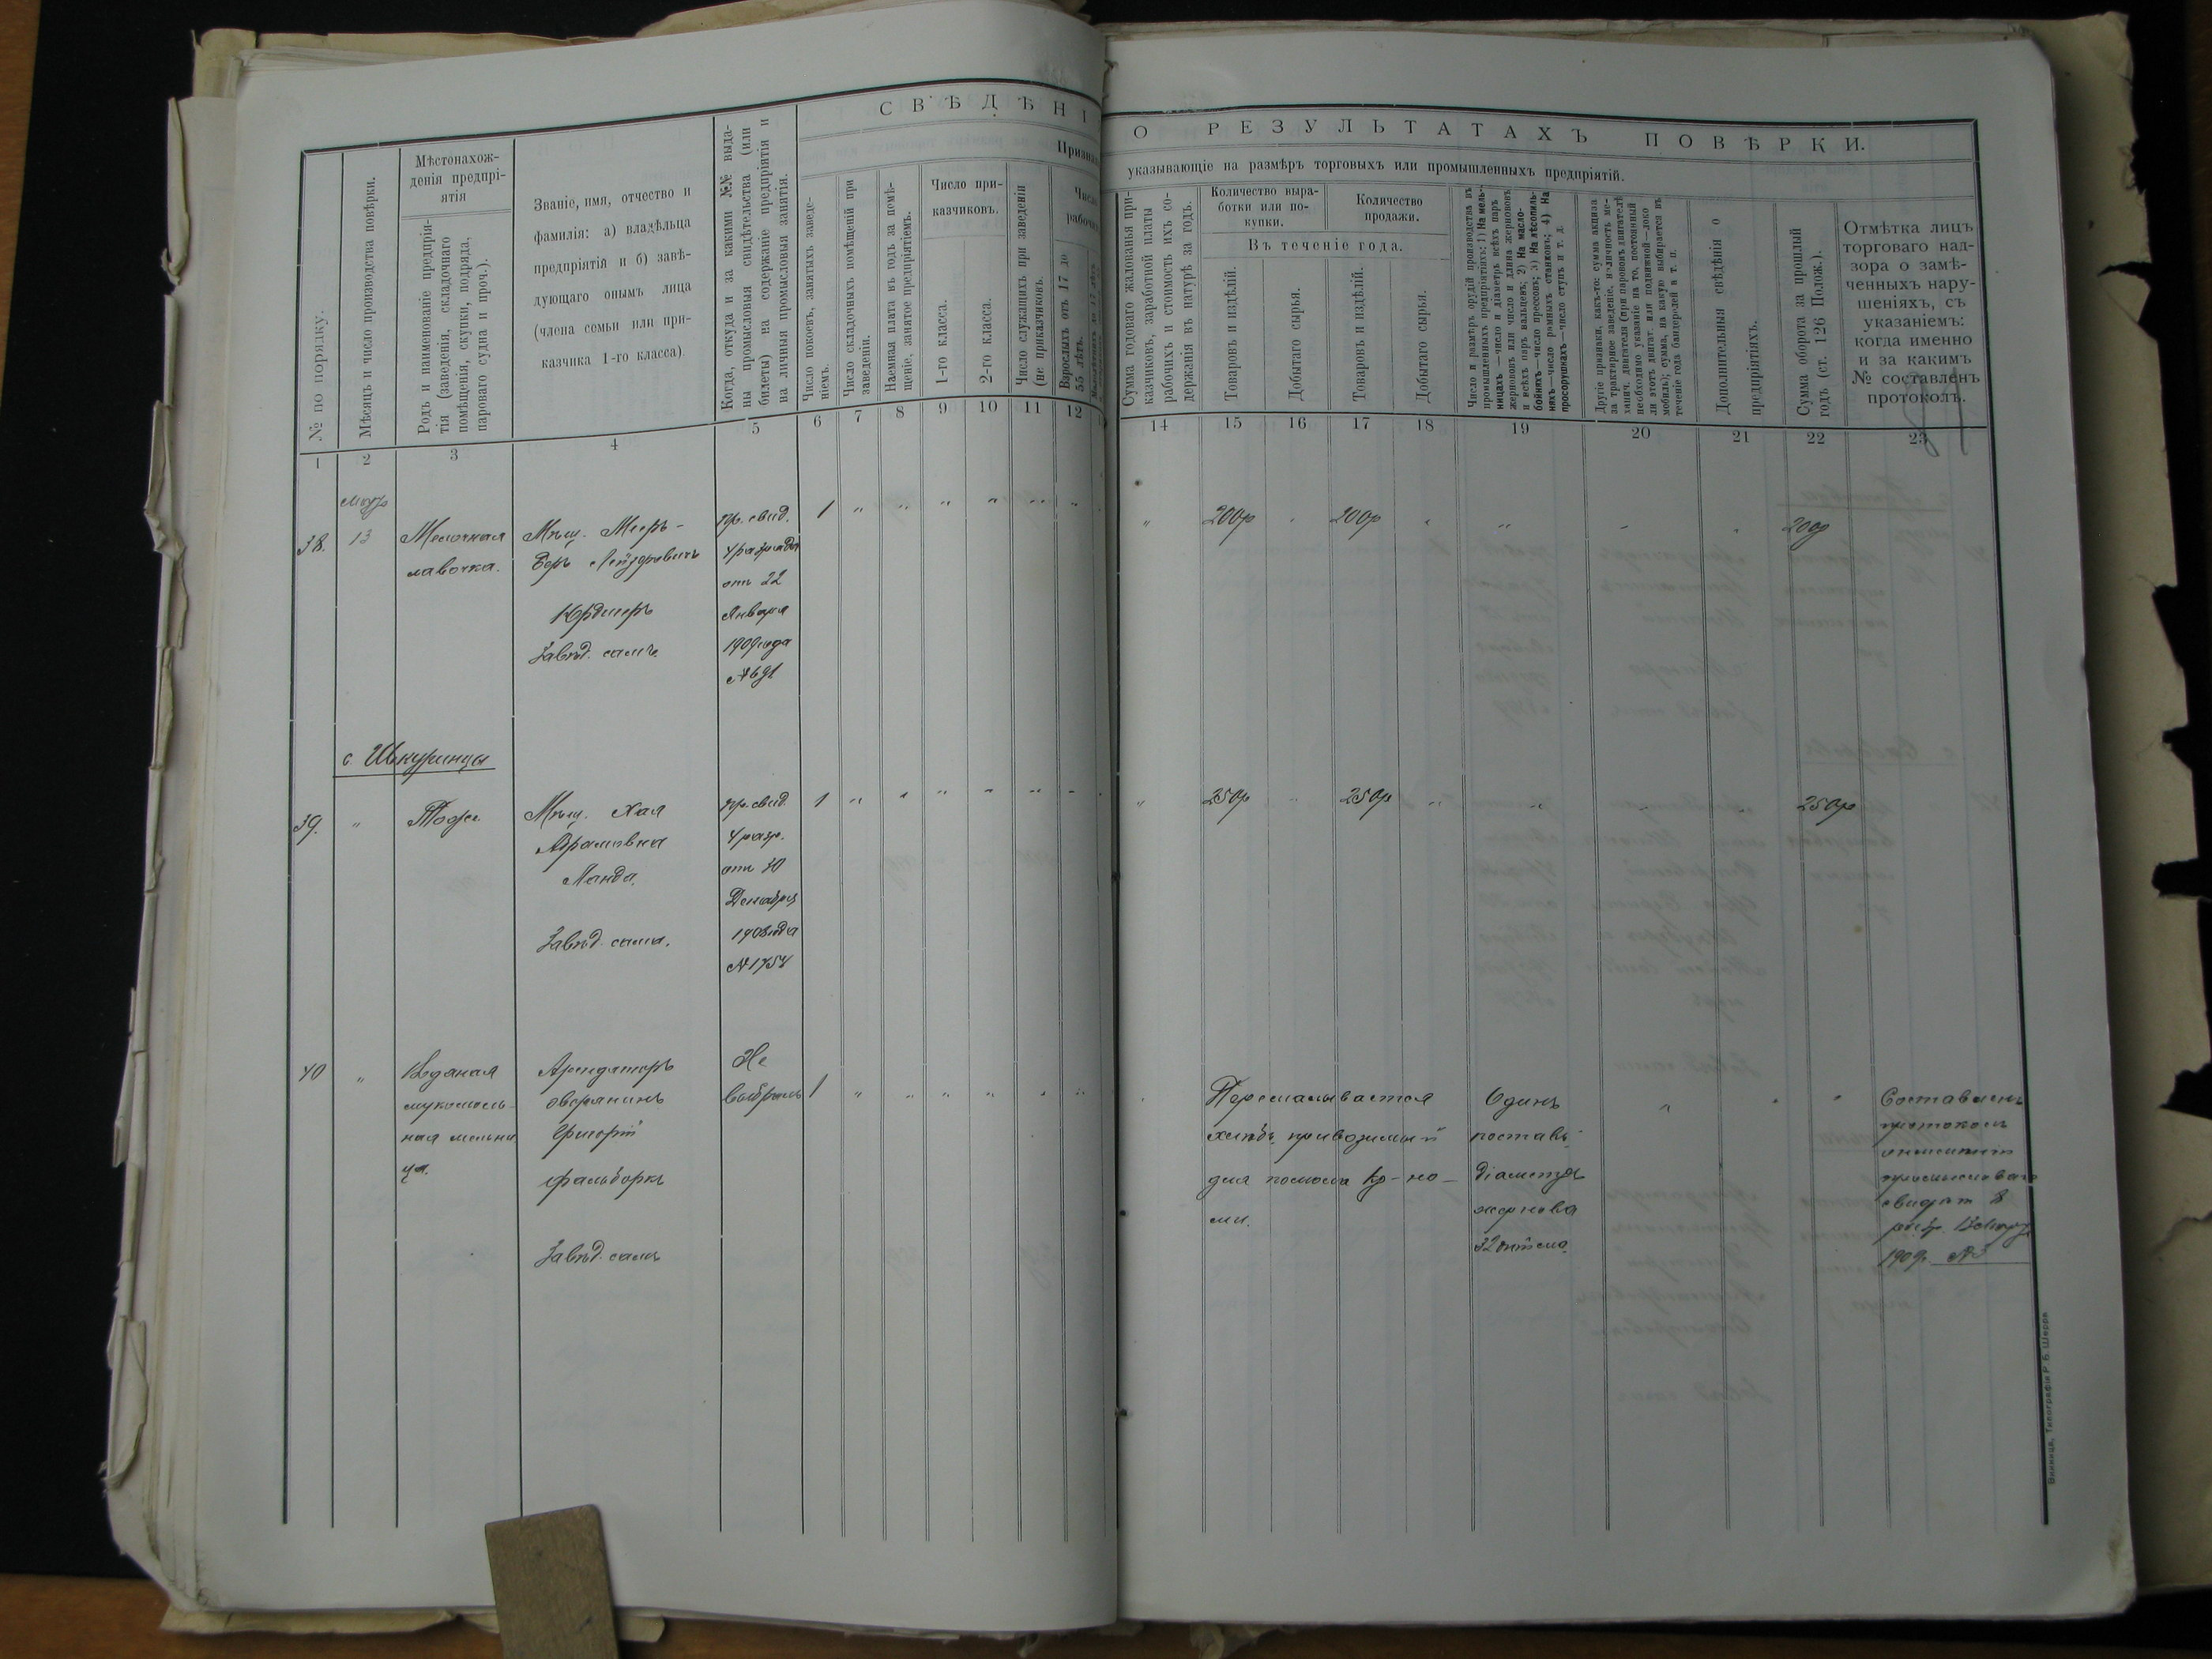 СВѢДѢНІ
О РЕЗУЛЬТАТАХЪ ПОВѢРКИ.
Признаки
указывающіе на размѣръ торговыхъ или промышленныхъ предпріятій.
№ по порядку.
Мѣсяцъ и число производства повѣрки.
Мѣстонахож-
денія предпрі-
ятія
Родъ и наименованіе предпрія-
тія (заведенія, складочнаго
помѣщенія, скупки, подряда,
пароваго судна и проч.).
Званіе, имя, отчество и
фамилія: а) владѣльца
предпріятій и б) завѣ-
дующаго онымъ лица
(члена семьи или при-
казчика 1-го класса)
Когда, откуда и за какими №№ выда-
ны промысловыя свидѣтельства (или
билеты) на содержаніе предпріятія и
на личныя промысловыя занятія.
Число покоевъ, занятыхъ заведе-
ніемъ.
Число складочныхъ помѣщеній при
заведеніи.
Наемная плата въ годъ за помѣ-
щеніе, занятое предпріятіемъ.
Число при-
казчиковъ.
1-го класса.
2-го класса.
Число служащихъ при заведеніи
(не приказчиковъ.
Число
рабочи
Взрослыхъ отъ 17 до
55 лѣтъ.
Сумма годоваго жалованья при-
казчиковъ, заработной платы
рабочихъ и стоимость ихъ со-
держанія въ натурѣ за годъ.
Количество выра-
ботки или по-
купки.
Количество
продажи.
Въ теченіе года.
Товаровъ и издѣлій.
Добытаго сырья.
Товаровъ и издѣлій.
Добытаго сырья.
Число и размѣръ орудій производства въ
промышленныхъ предпріятіяхъ: 1) На мель-
ницахъ—число и діаметръ всѣхъ паръ
жернововъ или число и длина жернововъ
и всѣхъ паръ вальцевъ; 2) На масло-
бойняхъ—число прессовъ; 3) На лѣсопиль-
няхъ—число рамныхъ станковъ; 4) На
просорушкахъ—число ступъ и т. д.
Другіе признаки, какъ-то: сумма акциза
за трактирное заведеніе, наличность ме-
ханич. двигателя (при паровомъ двигателѣ
необходимо указаніе на то, постоянный
ли этотъ двигат. или подвижной—локо
мобиль); сумма, на какую выбирается въ
теченіе года бандеролей и т. п.
Дополнительныя свѣдѣнія о
предпріятіяхъ.
Сумма оборота за прошлый
годъ (ст. 126 Полож.).
Отмѣтка лицъ
торговаго над-
зора о замѣ-
ченныхъ нару-
шеніяхъ, съ
указаніемъ:
когда именно
и за какимъ
№ составленъ
протоколъ.
1 2 3 4 5 6 7 8 9 10 11 12 14 15 16 17 18 19 20 21 22 23
38. 13 Мелочная Мѣщ. Мееръ- пр. свид. 1 200р 200р 200р
лавочка. Беръ 4 разряда
отъ 22
Января
Завѣд. самъ. 1909 года
№ 691
с. Шкуринцы
39. " Тоже Мѣщ. Хая пр. свид. 1 250р 250р 250р
Абрамовна 4 разр.
Ланда. отъ 30
Декабря
Завѣд. сама. 1908 года
№ 1754
40 " Водяная Арендаторъ Не
мукомоль- дворянинъ выбралъ 1 Перемалывается Одинъ Составленъ
ная мельни Григорій хлѣбъ привозимый поставъ протоколъ
ца. Фальборкъ для помола діаметръ
жернова
Завѣд. самъ 32 1909 № 3
Винница, Типографія Р. Б. Шерра